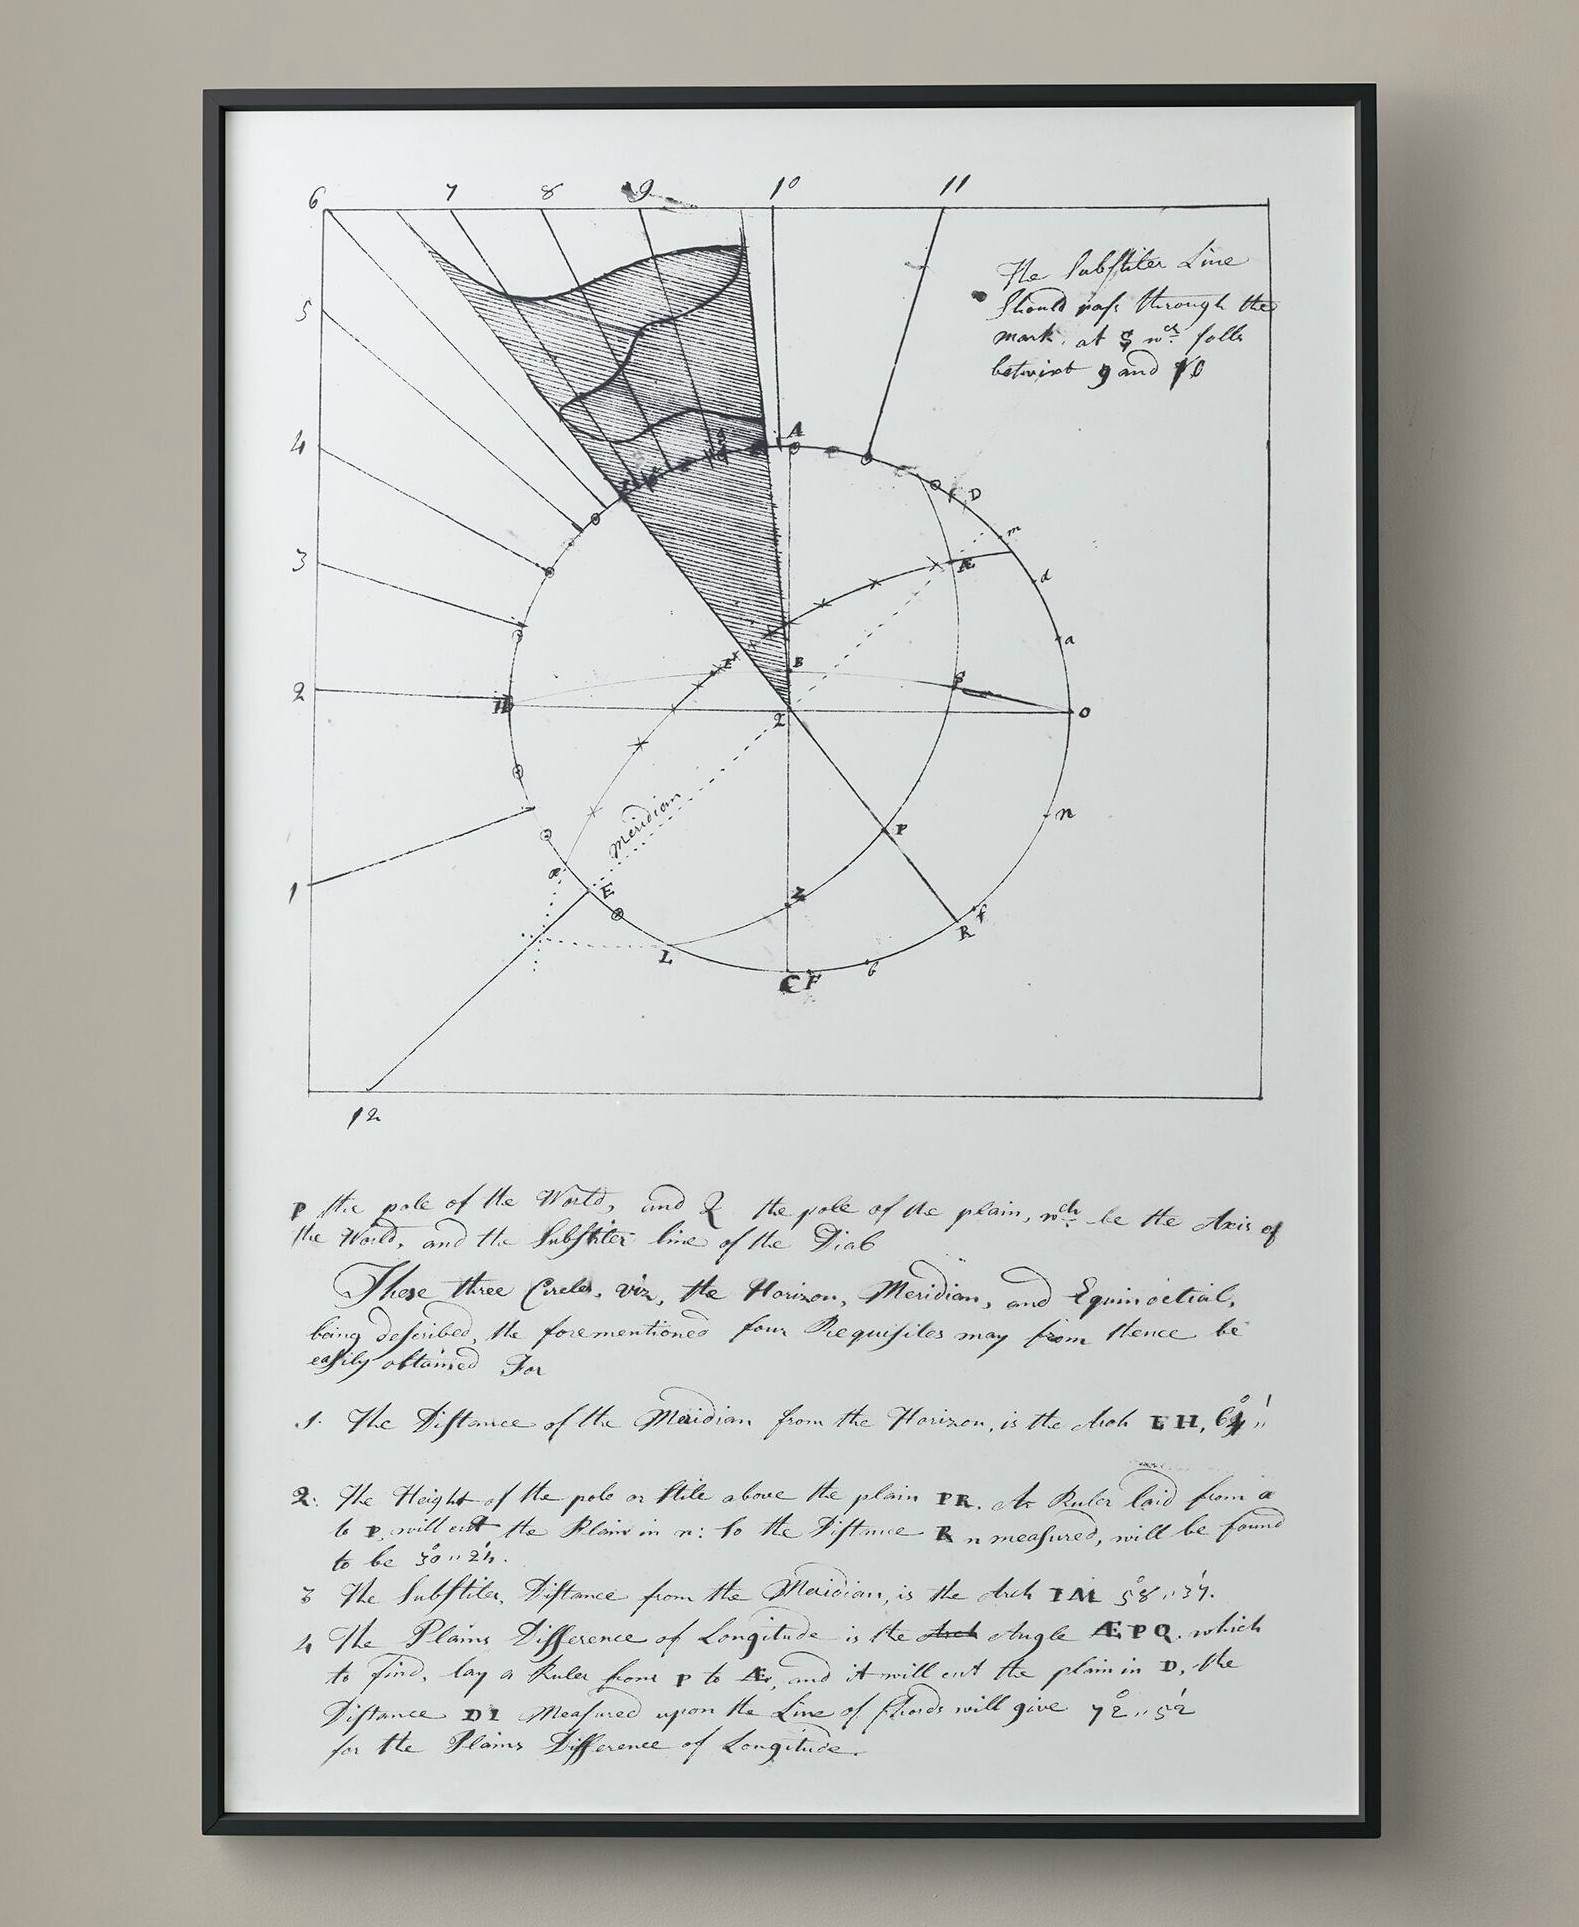 6 7 8 9 10 11
5
4
3
2
1
12
The Subſtiler Line
Should paſs through the
mark at S wch falls
betwixt 9 and 10
A
D
m
Æ
d
a
E
B
S
H
Q
O
meridian
n
P
æ
E
Z
f
R
L
C F
6
P the pole of the World, and Q the pole of the plain, wch be the Axis of
the World, and the Subſtiler line of the Dial
These three Circles, viz, the Horizon, Meridian, and Equinoctial,
being deſcribed, the forementioned four Requiſites may from thence be
eaſily obtained For
1. The Diſtance of the Meridian from the Horizon, is the Arch EH,
2. The Height of the pole or Stile above the plain PR. A Ruler laid from a
to P, will cut the Plain in n: So the Diſtance R n meaſured, will be found
to be 30°,,24'.
3 The Subſtiler, Diſtance from the Meridian, is the Arch 58°,,37'.
4 The Plains Difference of Longitude is the Arch Angle ÆPQ. which
to find, lay a Ruler from P to Æ, and it will cut the plain in D, the
Diſtance Meaſured upon the Line of Chords will give 72°,,52'
for the Plains Difference of Longitude.